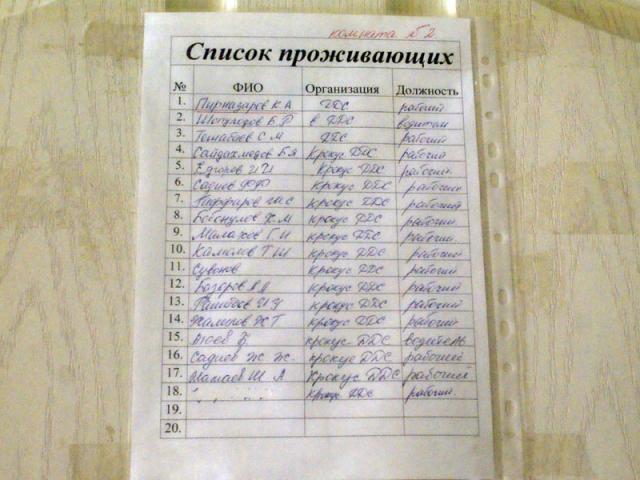 комната №2
Список проживающих
№ ФИО Организация Должность
1. Пирназаров К А ДДС рабочий
2. Б Р в ДДС водитель
3. С М ДДС рабочий
4. Сайдахмедов Б Я Крокус ДДС рабочий
5. Егоров И И Крокус ДДС рабочий.
6. Садиев крокус ДДС рабочий
7. Гаффаров крокус ДДС рабочий
8. Бобокулов Х М крокус ДДС рабочий.
9. Малахов Г И крокус ДДС рабочий.
10. Камолов Т Ш крокус ДДС рабочий
11. Сувонов крокус ДДС рабочий
12. Базаров крокус ДДС рабочий
13. крокус ДДС рабочий
14. Х Т крокус ДДС рабочий
15. крокус ДДС водитель
16. Садиев Ж Ж. крокус ДДС рабочий
17. Мамаев Ш А Крокус ДДС рабочий
18. Крокус ДДС рабочий.
19.
20.